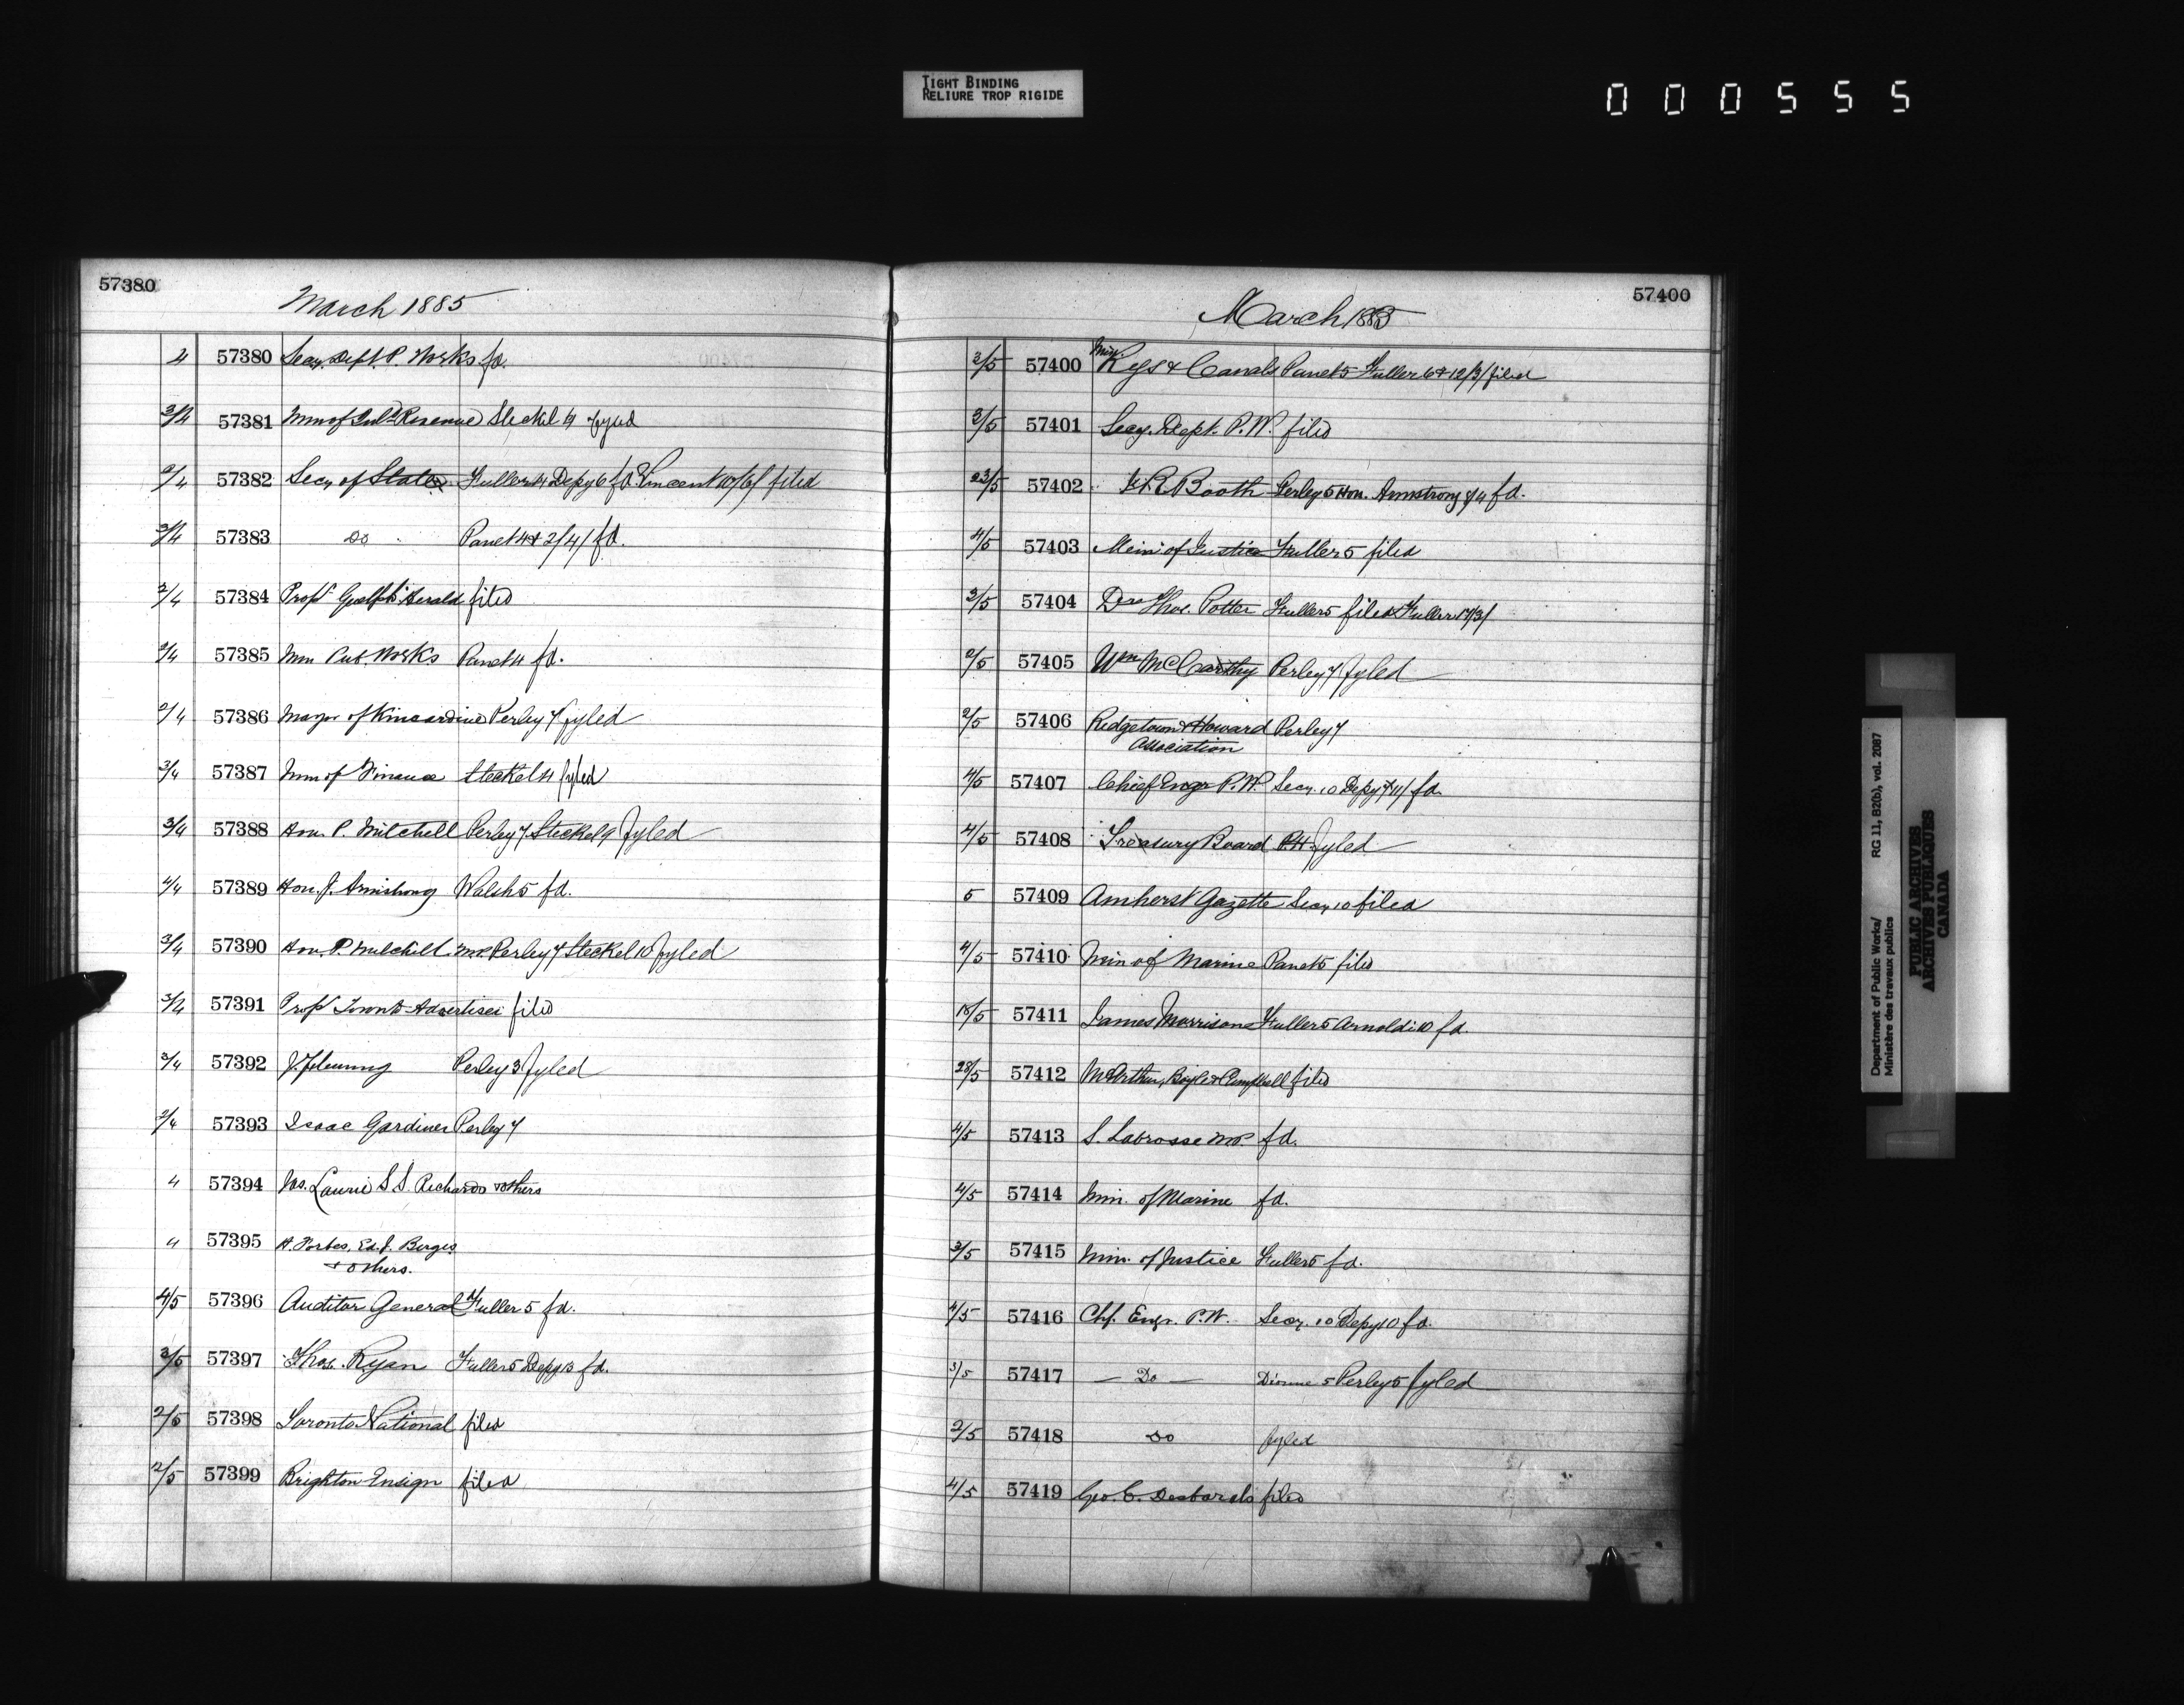 TIGHT BINDING
RELIURE TROP RIGIDE
000555
57380
March 1885
4 57380 Secy. Dept. P. Works fd.
3/4 57381 Min of Inld Revenue Steckel 4 fyled
2/4 57382 Secy of State Fuller 4 Depy 6 fd Vincent 10/6/ filed
3/4 57383 Do Panet 4 & 2/4/ fd.
2/4 57384 Propr Guelph Herald filed
2/4 57385 Min Pub Works Panet 4 fd.
2/4 57386 Mayor of Kincardine Perley 7 fyled
3/4 57387 Min of Finance Steckel 4 fyled
3/4 57388 Hon. P. Mitchell Perley 7 Steckel 9 fyled
4/4 57389 Hon. J. Armstrong Walsh 5 fd.
3/4 57390 Hon. P. Mitchell MP. Perley 7 Steckel 10 fyled
3/4 57391 Propr Advertiser filed
3/4 57392 J. Fleming Perley 3 fyled
2/4 57393 Isaac Gardiner Perley 7
4 57394 Jas. Laurie S. S. Richards & others
4 57395 H. Forbes, Ed. J.
& others.
4/5 57396 Auditor General Fuller 5 fd.
3/5 57397 Thos. Ryan Fuller 5 Depy 13 fd.
2/5 57398 Toronto National filed
2/5 57399 Brighton Ensign filed
57400
March 1885
3/5 57400 Min. Rys & Canals Panet 5 Fuller 6 & 12/3/ filed
3/5 57401 Secy. Dept. P.W. filed
23/5 57402 J. R. Booth Perley 5 Hon. Armstrong fd.
4/5 57403 Min of Justice Fuller 5 filed
3/5 57404 Thos. Potter Fuller 5 filed Fuller 17/3/
2/5 57405 Wm McCarthy Perley 7 fyled
2/5 57406 Ridgetown & Howard Perley 7
Association
4/5 57407 Chief Engr P.W. Secy. 10 Depy 11/ fd.
4/5 57408 Treasury Board fyled
5 57409 Amherst Gazette Secy 10 filed
4/5 57410 Min of Marine Panet 5 filed
18/5 57411 James Morrison Fuller 5 Arnoldi 10 fd.
28/5 57412 McArthur, Boyle & Campbell filed
4/5 57413 S. Labrosse MP. fd.
4/5 57414 Min. of Marine fd.
3/5 57415 Min. of Justice Fuller 5 fd.
4/5 57416 Chf. Engr. P.W. Secy. 10 Depy 10 fd.
3/5 57417 — Do — Dionne 5 Perley 5 fyled
2/5 57418 Do fyled
4/5 57419 Geo. E. Desbarats filed
Department of Public Works/ RG 11, B2(b), vol. 2087
Ministère des travaux publics
PUBLIC ARCHIVES
ARCHIVES PUBLIQUES
CANADA